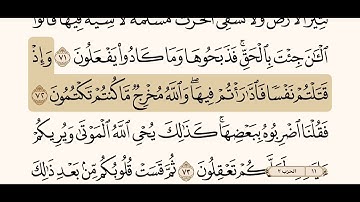 تثير الأرض ولا تسقي الحرث مسلمة لا شية فيها قالوا
ٱلۡـَٰٔنَ جِئۡتَ بِٱلۡحَقِّۚ فَذَبَحُوهَا وَمَا كَادُواْ يَفۡعَلُونَ ٧١ وَإِذۡ
قَتَلۡتُمۡ نَفۡسٗا فَٱدَّٰرَٰٔتُمۡ فِيهَاۖ وَٱللَّهُ مُخۡرِجٞ مَّا كُنتُمۡ تَكۡتُمُونَ ٧٢
فَقُلۡنَا ٱضۡرِبُوهُ بِبَعۡضِهَاۚ كَذَٰلِكَ يُحۡيِ ٱللَّهُ ٱلۡمَوۡتَىٰ وَيُرِيكُمۡ
ءَايَٰتِهِۦ لَعَلَّكُمۡ تَعۡقِلُونَ ٧٣ ثُمَّ قَسَتۡ قُلُوبُكُم مِّنۢ بَعۡدِ ذَٰلِكَ
١١ الحزب ٢